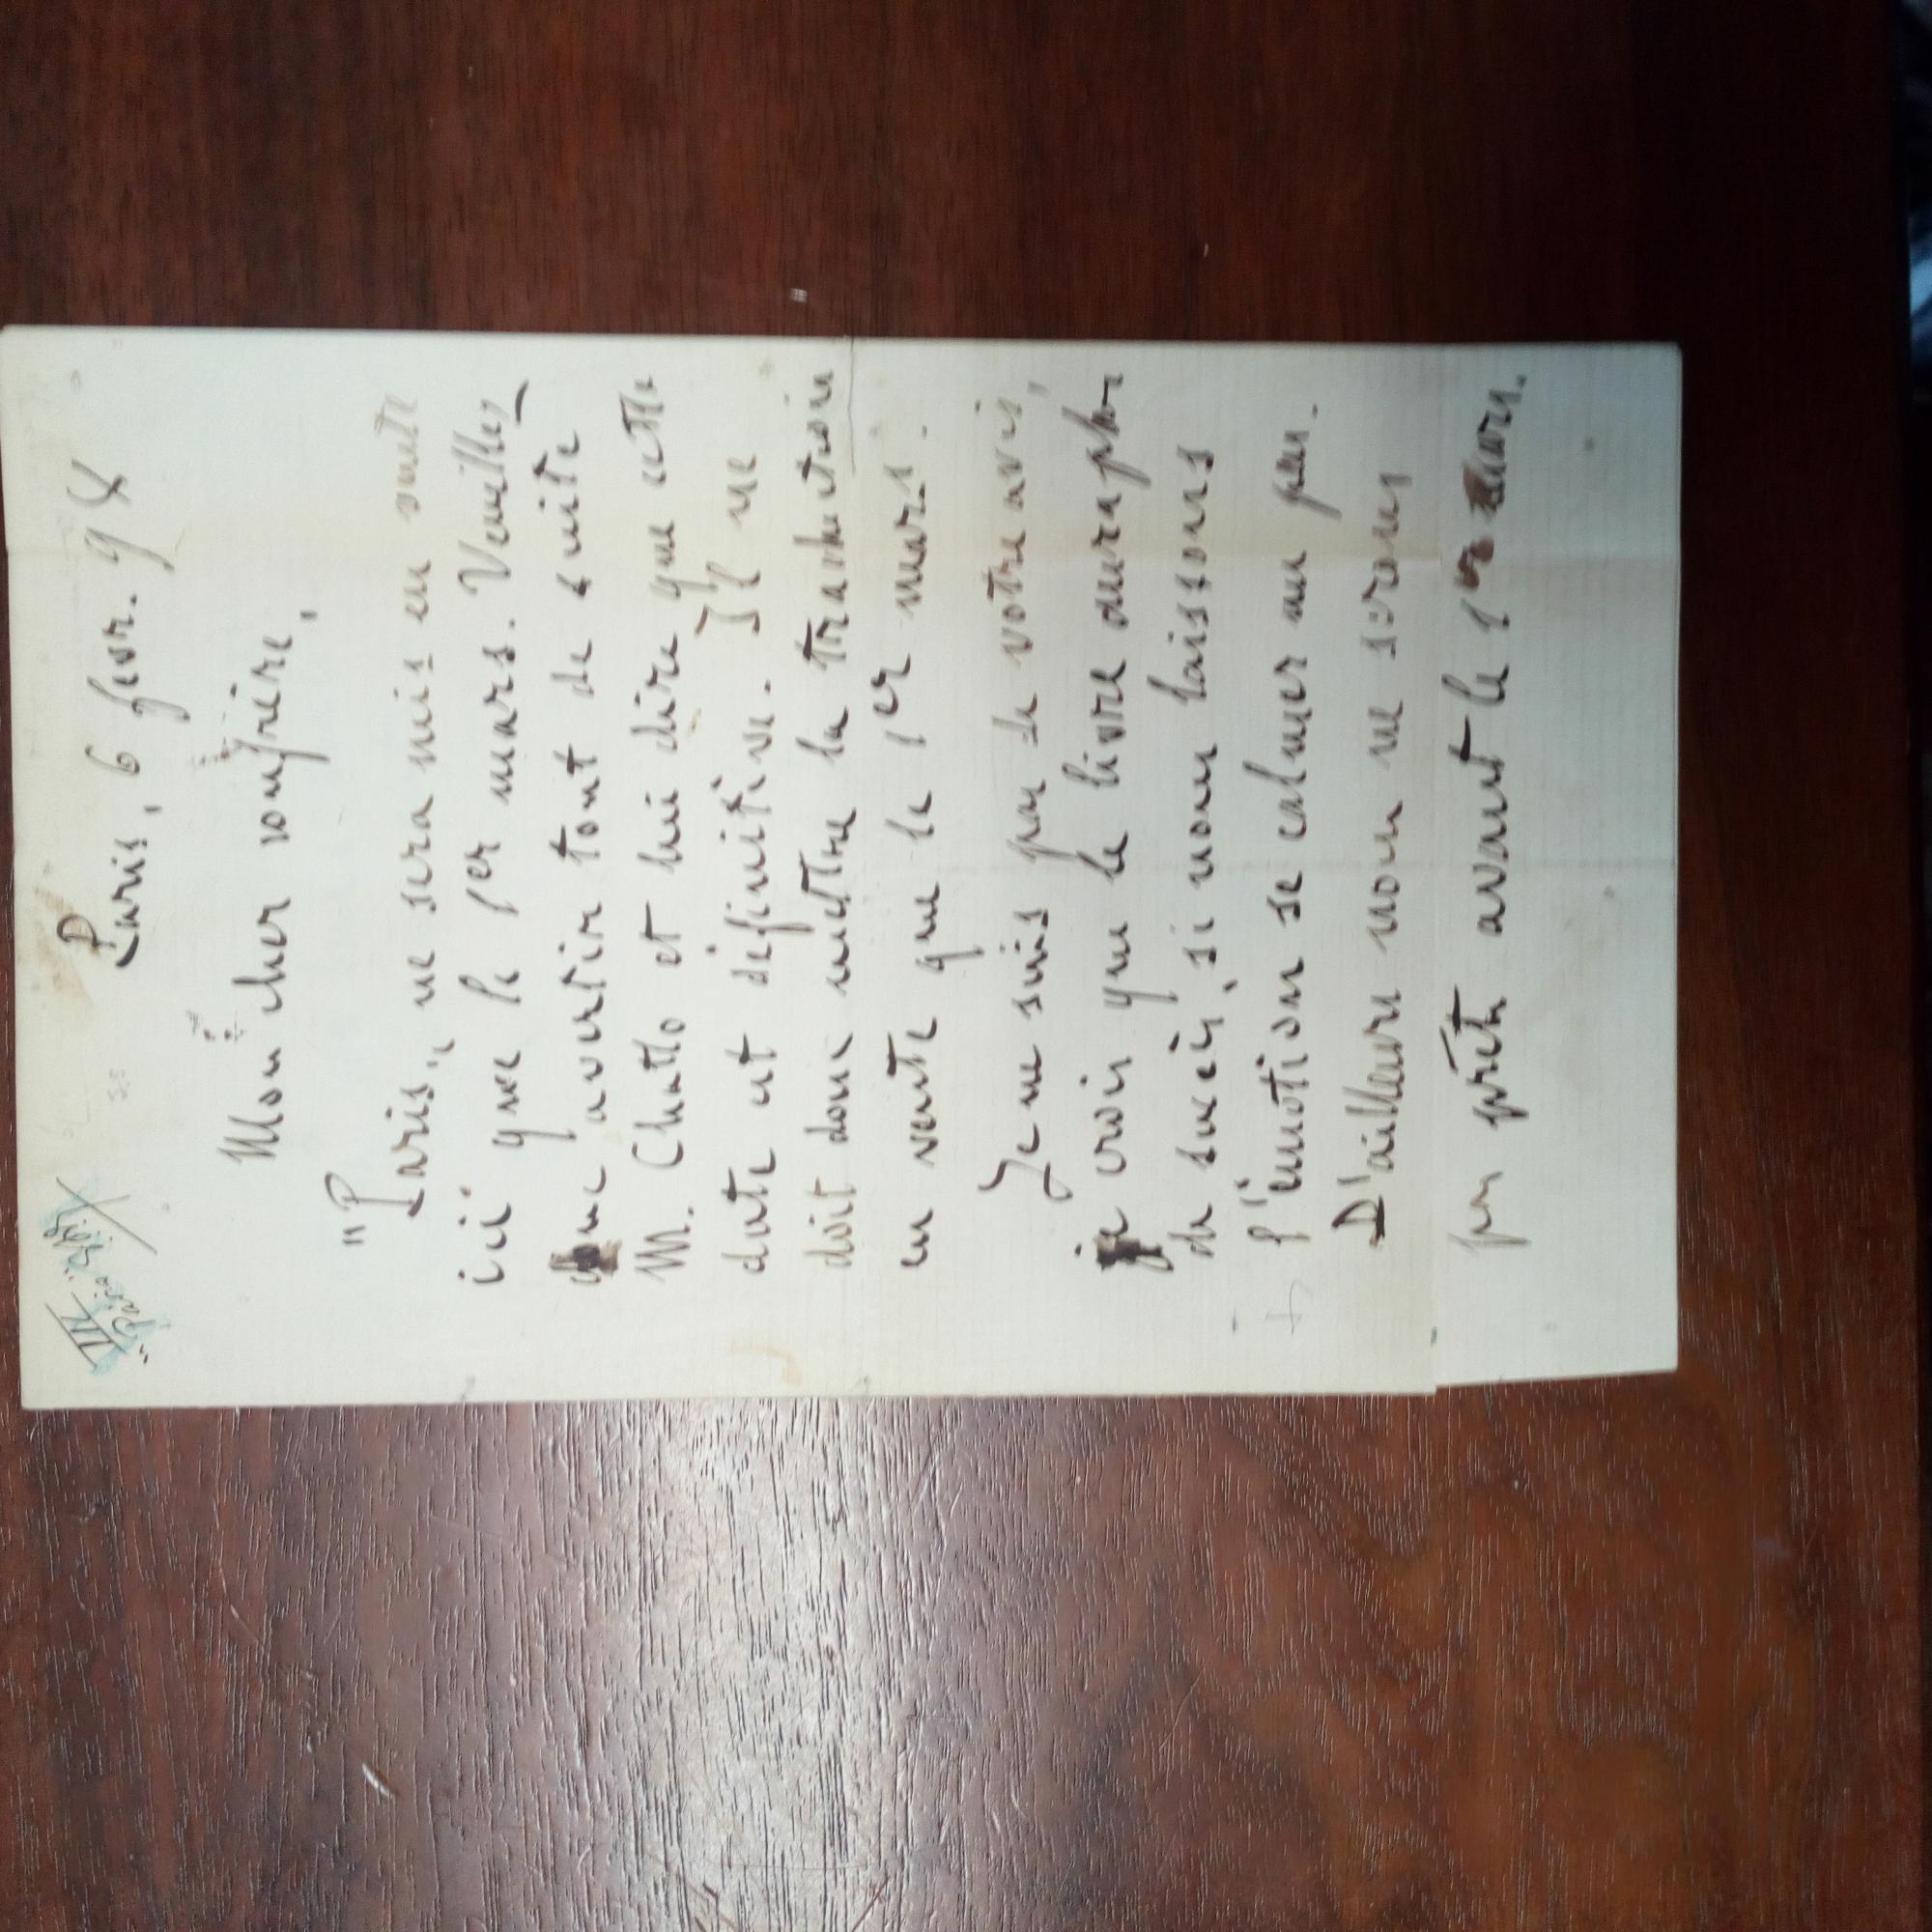 Paris, 6 févr. 98
Mon cher confrère,
"Paris" ne sera mis en vente
ici que le 1er mars. Veuillez
donc avertir tout de suite
M. Chatto et lui dire que cette
date est définitive. Il ne
doit donc mettre la traduction
en vente que le 1er mars.
Je ne suis pas de votre avis,
je crois que le livre aura plus
de succès, si nous laissons
l'émotion se calmer un peu.
D'ailleurs nous ne serons
pas prêts avant le 1er mars.